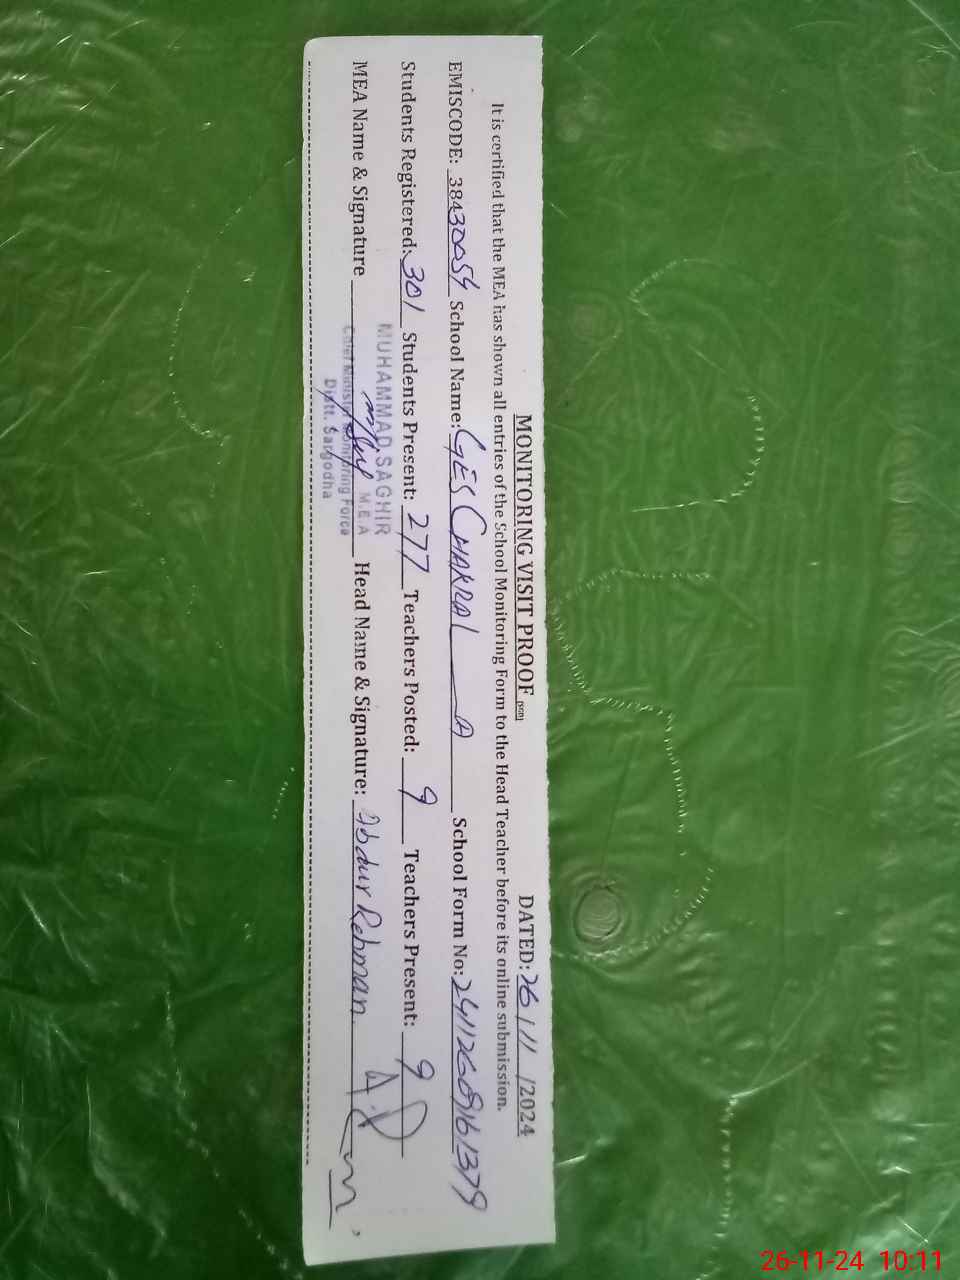 MONITORING VISIT PROOF (SGD) DATED: 26/11/2024
It is certified that the MEA has shown all entries of the School Monitoring Form to the Head Teacher before its online submission.
EMISCODE: 38430054 School Name: GES CHAKRAL A School Form No: 24112609161379
Students Registered: 301 Students Present: 277 Teachers Posted: 9 Teachers Present: 9
MEA Name & Signature Head Name & Signature: Abdur Rehman
MUHAMMAD SAGHIR
M.E.A
Chief Minister Monitoring Force
Distt. Sargodha
26-11-24 10:11